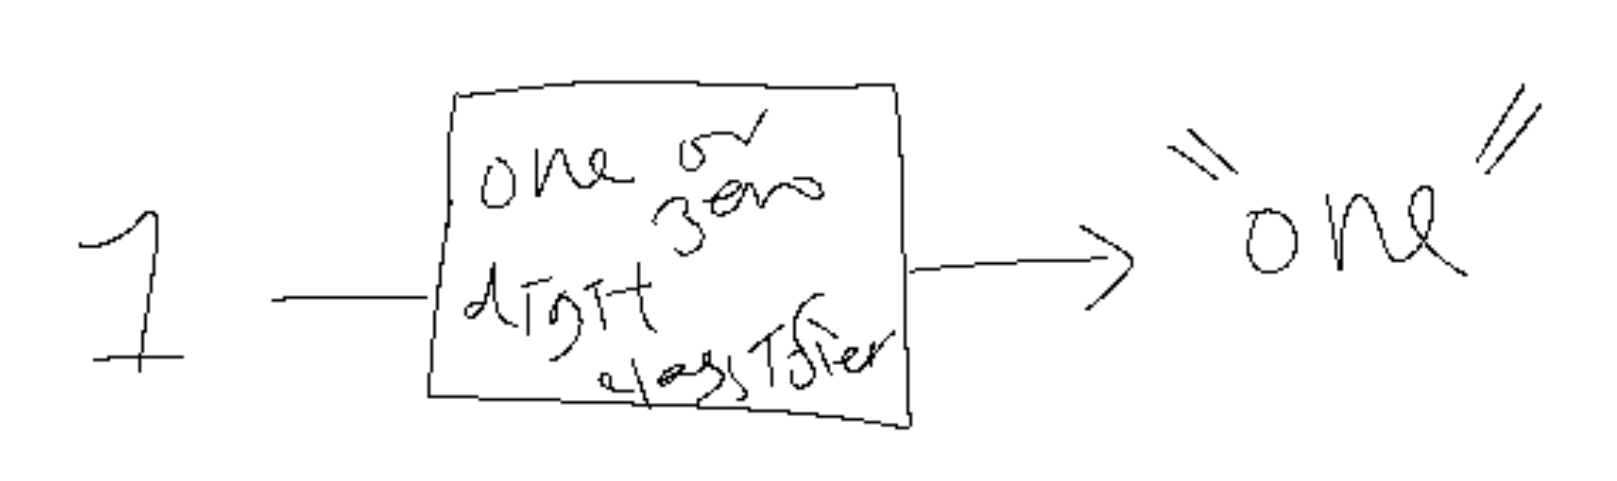 1
one or
zero
digit
classifier
"one"